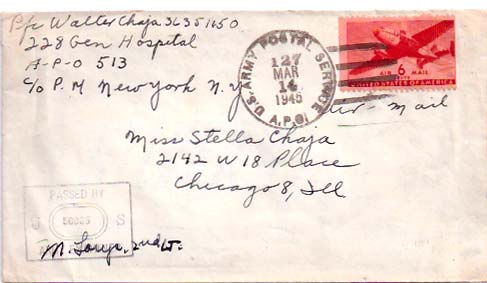 Pfc Walter Chaja 36351650
228 Gen Hospital
A-P-O 513
c/o P.M New York N.Y
U.S. ARMY POSTAL SERVICE
127
MAR
14
1945
A.P.O.
AIR 6 MAIL
UNITED STATES OF AMERICA
Air-Mail
Miss Stella Chaja
2142 W 18 Place
Chicago 8, Ill
PASSED BY
U S
2nd Lt.